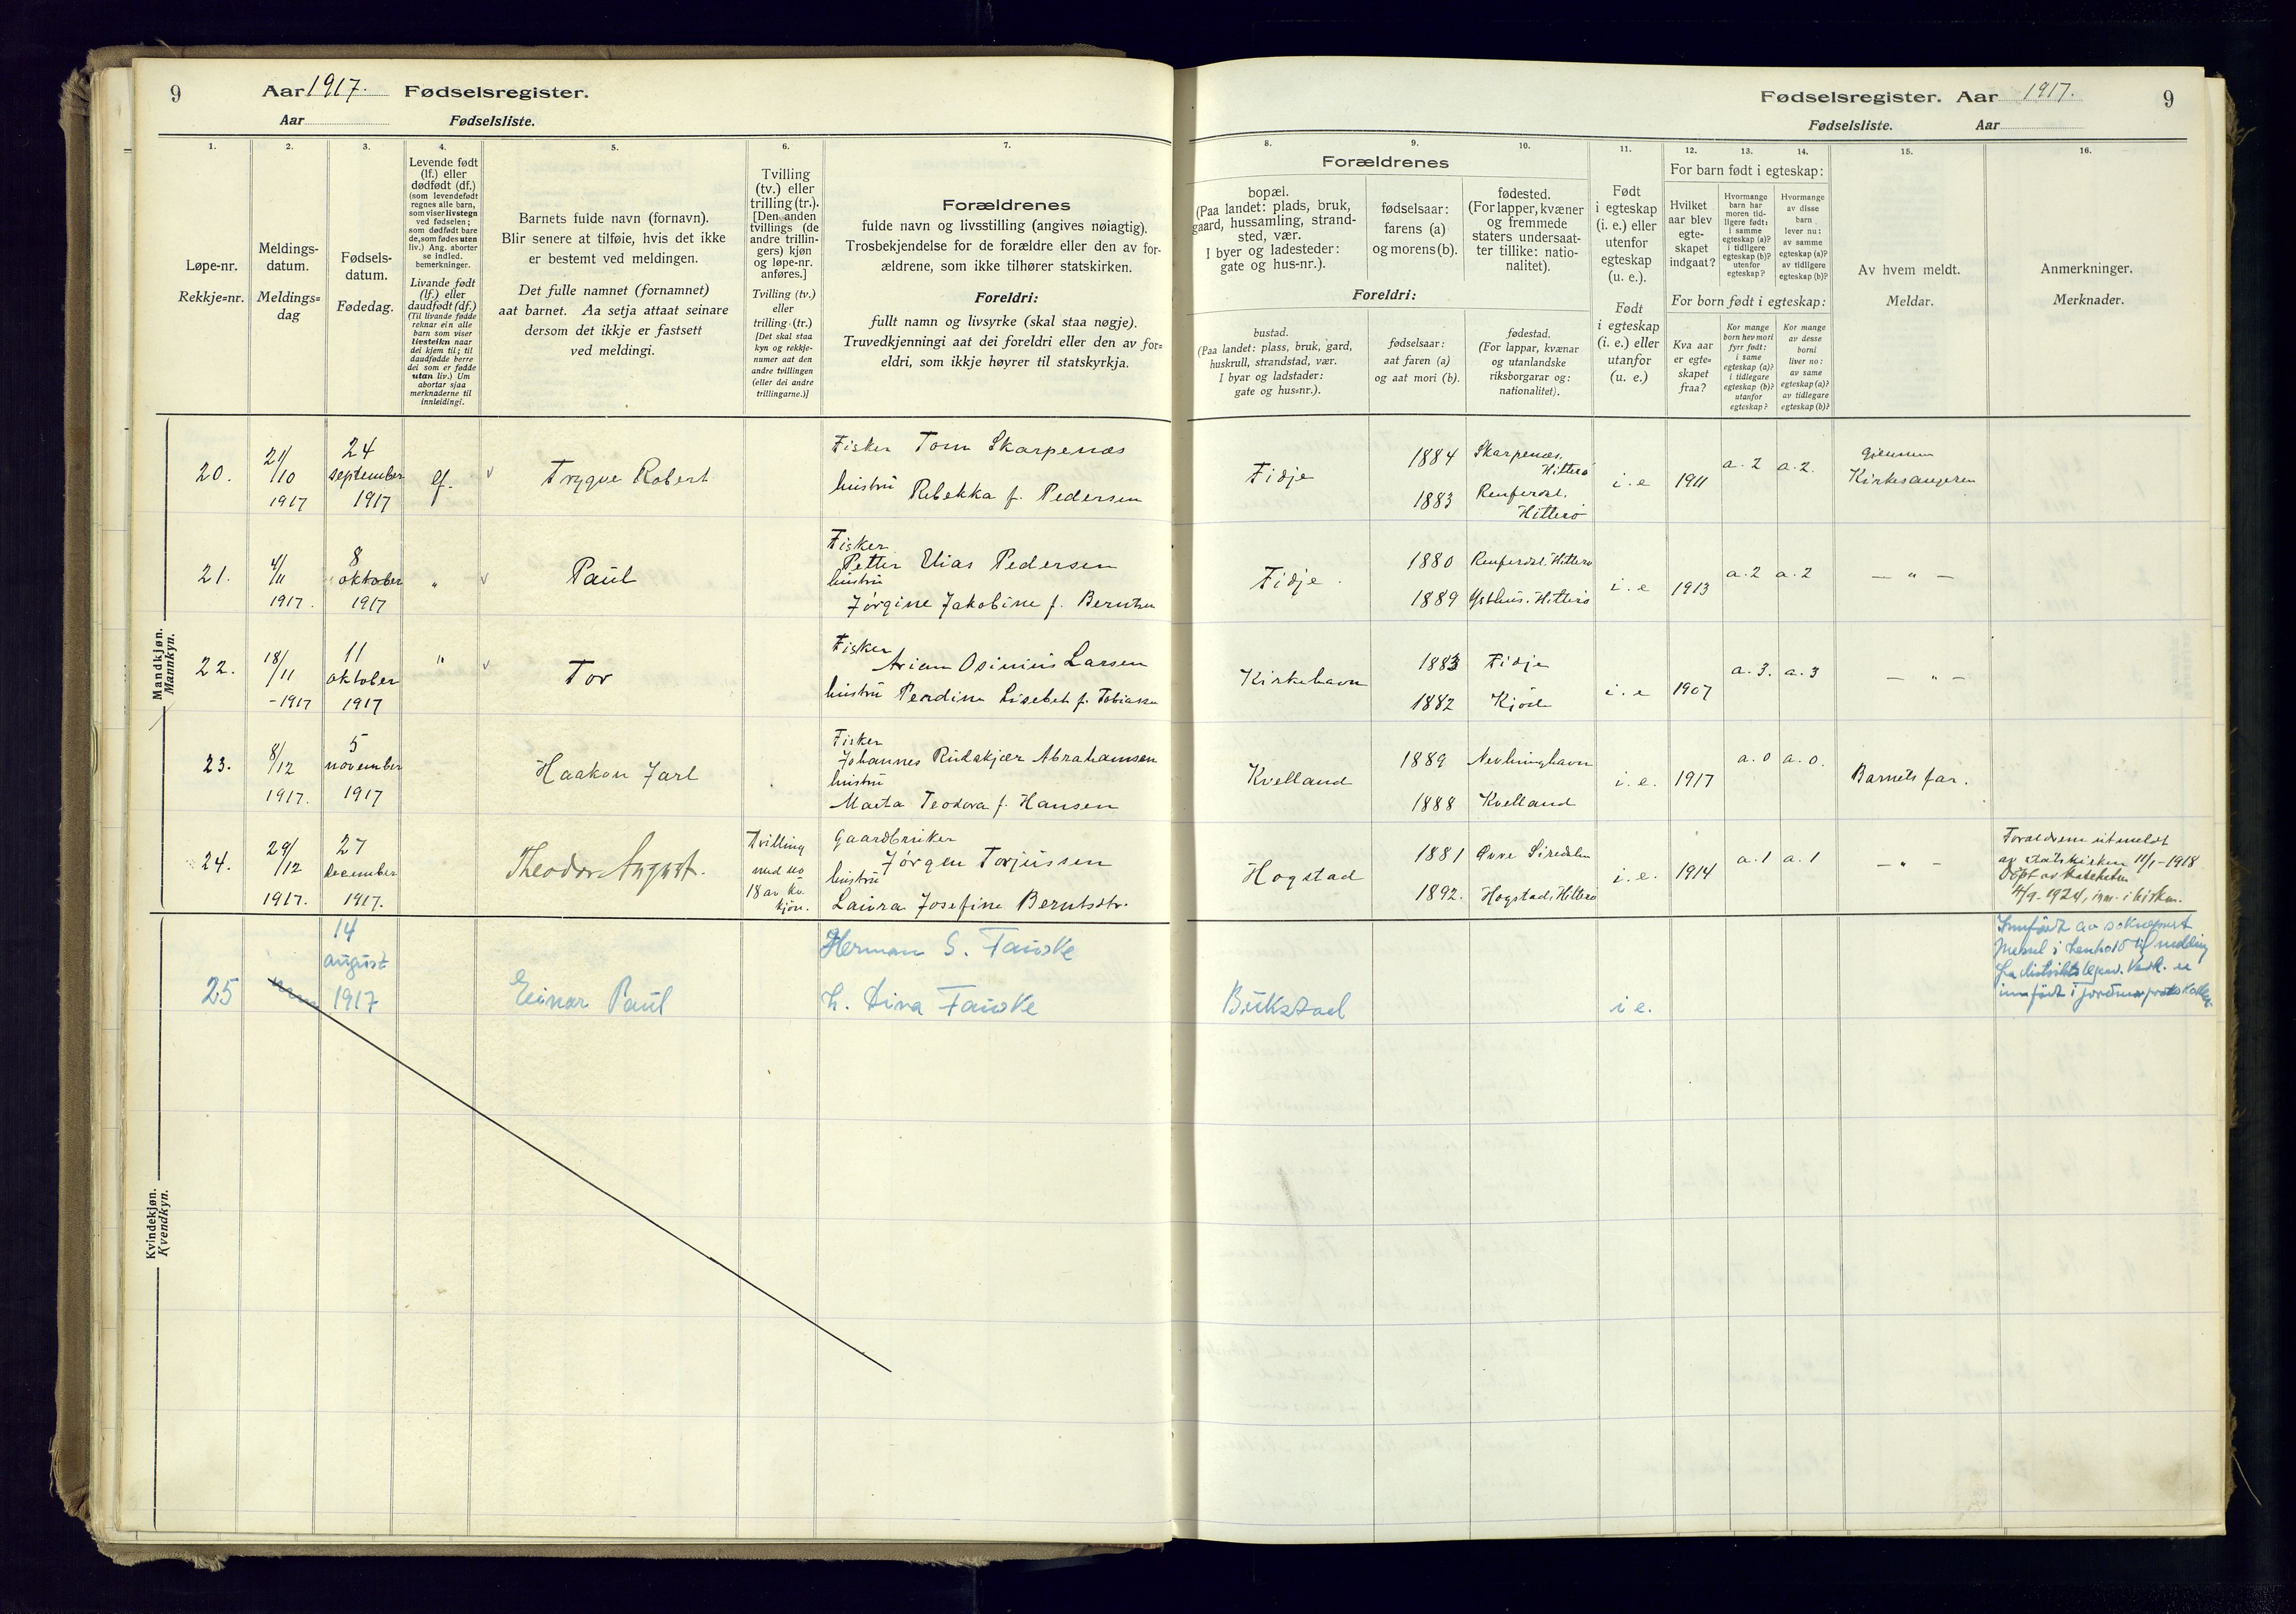 9 Aar 1917. Fødselsregister.
Aar Fødselsliste.
Fødselsregister. Aar 1917. 9
Fødselsliste. Aar
1.
Løpe-nr.
Rekkje=nr.
2.
Meldings-
datum.
Meldings=
dag
3.
Fødsels-
datum.
Fødedag.
4.
Levende født
(lf.) eller
dødfødt (df.)
(som levendefødt
regnes alle barn,
som viser livstegn
ved fødselen;
som dødfødt bare
de, som fødes uten
liv.) Ang. aborter
se indled.
bemerkninger.
Livande født
(lf.) eller
daudfødt (df.)
(Til livande fødde
reknar ein alle
barn som viser
livsteikn naar
dei kjem til; til
daudfødde berre
dei som er fødde
utan liv.) Um
abortar sjaa
merknaderne til
innleidingi.
5.
Barnets fulde navn (fornavn).
Blir senere at tilføie, hvis det ikke
er bestemt ved meldingen.
Det fulle namnet (fornamnet)
aat barnet. Aa setja attaat seinare
dersom det ikkje er fastsett
ved meldingi.
6.
Tvilling
(tv.) eller
trilling (tr.).
[Den anden
tvillings (de
andre trillin-
gers) kjøn
og løpe-nr.
anføres.]
Tvilling (tv.)
eller
trilling (tr.)
[Det skal staa
kyn og rekkje-
numer aat den
andre tvillingen
(eller dei andre
trillingarne.)]
7.
Forældrenes
fulde navn og livsstilling (angives nøiagtig).
Trosbekjendelse for de forældre eller den av for-
ældrene, som ikke tilhører statskirken.
Foreldri:
fullt namn og livsyrke (skal staa nøgje).
Truvedkjenningi aat dei foreldri eller den av for=
eldri, som ikkje høyrer til statskyrkja.
8. 9. 10.
Forældrenes
bopæl.
(Paa landet: plads, bruk,
gaard, hussamling, strand-
sted, vær.
I byer og ladesteder:
gate og hus-nr.).
fødselsaar:
farens (a)
og morens (b).
fødested.
(For lapper, kvæner
og fremmede
staters undersaat-
ter tillike: natio-
nalitet).
Foreldri:
bustad.
(Paa landet: plass, bruk, gard,
huskrull, strandstad, vær.
I byar og ladstader:
gate og hus=nr.).
fødselsaar:
aat faren (a)
og aat mori (b).
fødestad.
(For lappar, kvænar
og utanlandske
riksborgarar og:
nationalitet).
11.
Født
i egteskap
(i. e.) eller
utenfor
egteskap
(u. e.).
Født
i egteskap
(i. e.) eller
utanfor
(u. e.)
12. 13. 14.
For barn født i egteskap:
Hvilket
aar blev
egte-
skapet
indgaat?
Hvormange
barn har
moren tid-
ligere født:
i samme
egteskap (a)?
i tidligere
egteskap (b)?
utenfor
egteskap?
Hvormange
av disse
barn
lever nu:
av samme
egteskap (a)?
av tidligere
egteskap (b)?
For born født i egteskap:
Kva aar
er egte=
skapet
fraa?
Kor mange
born hev mori
fyrr født:
i same
egteskap (a)?
i tidlegare
egteskap (b)?
utanfor
egteskap?
Kor mange
av desse
borni
liver no:
av same
egteskap (a)?
av tidlegare
egteskap (b)?
15.
Av hvem meldt.
Meldar.
16.
Anmerkninger.
Merknader.
Mandkjøn.
Mannkyn.
20. 21/10 1917 24 september 1917 lf. Trygve Robert
Fisker Tom Skarpenæs
hustru Rebekka f. Pedersen
Fidje 1884 Skarpenæs, Hitterø
1883 Renferdal, Hitterø
i. e 1911 a. 2 a. 2. gjennem Kirkesangeren
21. 4/11 1917. 8 oktober 1917 " Paul
Fisker
Petter Elias Pedersen
hustru
Jørgine Jakobine f. Berntsen
Fidje. 1880 Renferdal, Hitterø
1889 Østhus, Hitterø
i. e 1913 a. 2 a. 2 — " —
22. 18/11 -1917 11 oktober 1917 " Tor
Fisker
Arian Osinius Larsen
hustru Perdine Lisebet f. Tobiassen
Kirkehavn 1883 Fidje
1882
i. e 1907 a. 3. a. 3 — " —
23. 8/12 1917. 5 november 1917 Haakon Jarl
Fisker
Johannes Rudskjær Abrahamsen
hustru
Marta Teodora f. Hansen
Kvelland 1889 Nevlunghavn
1888 Kvelland
i. e. 1917 a. 0 a. 0. Barnets far.
24. 29/12 1917. 27 december 1917. Theodor August.
Tvilling
med no
18 av kv.
kjøn.
Gaardbruker
Jørgen Torjussen
hustru
Laura Josefine Berntsdtr.
Hogstad 1881 Øvre Siredalen
1892. Hogstad, Hitterø
i. e. 1914 a. 1 a. 1 — " —
Forældrene utmeldt
av statskirken 11/1-1918
Døpt av
1924, i kirken.
25 14 august 1917 Einar Paul
Herman S. Fauske
h. Dina Fauske
Bukstad i e.
Innført av sokneprest
i henhold til melding
innført i
Kvindekjøn.
Kvendkyn.